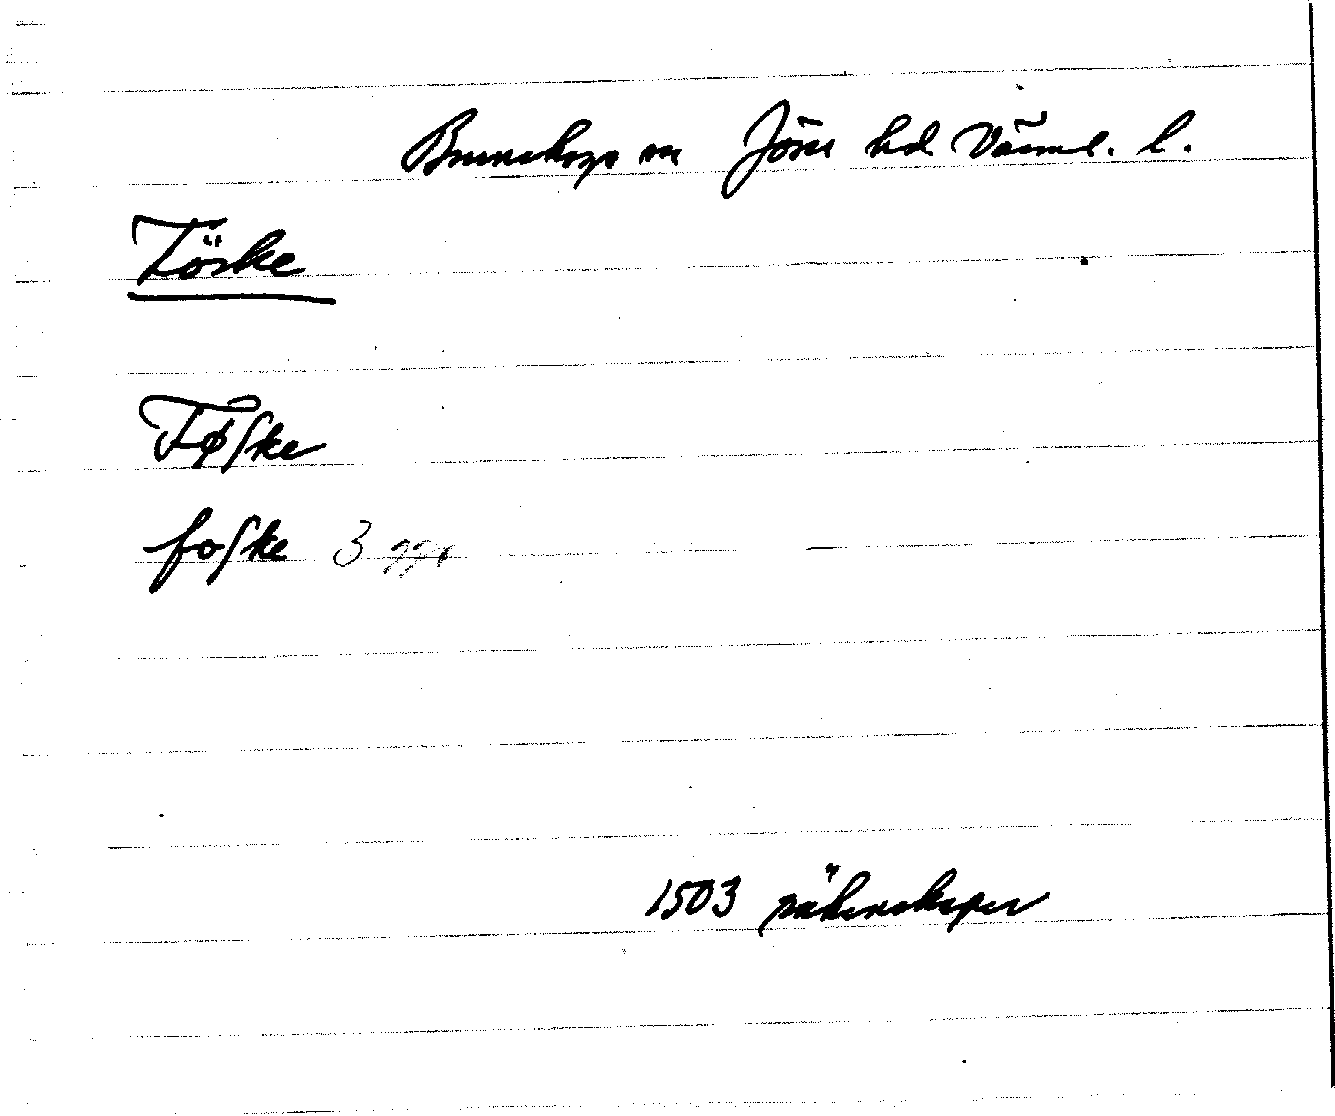 Brunskogs sn Jösse hd Värml. l.
Föske
Føſke
foſke 3 ggr
1503 räkenskaper